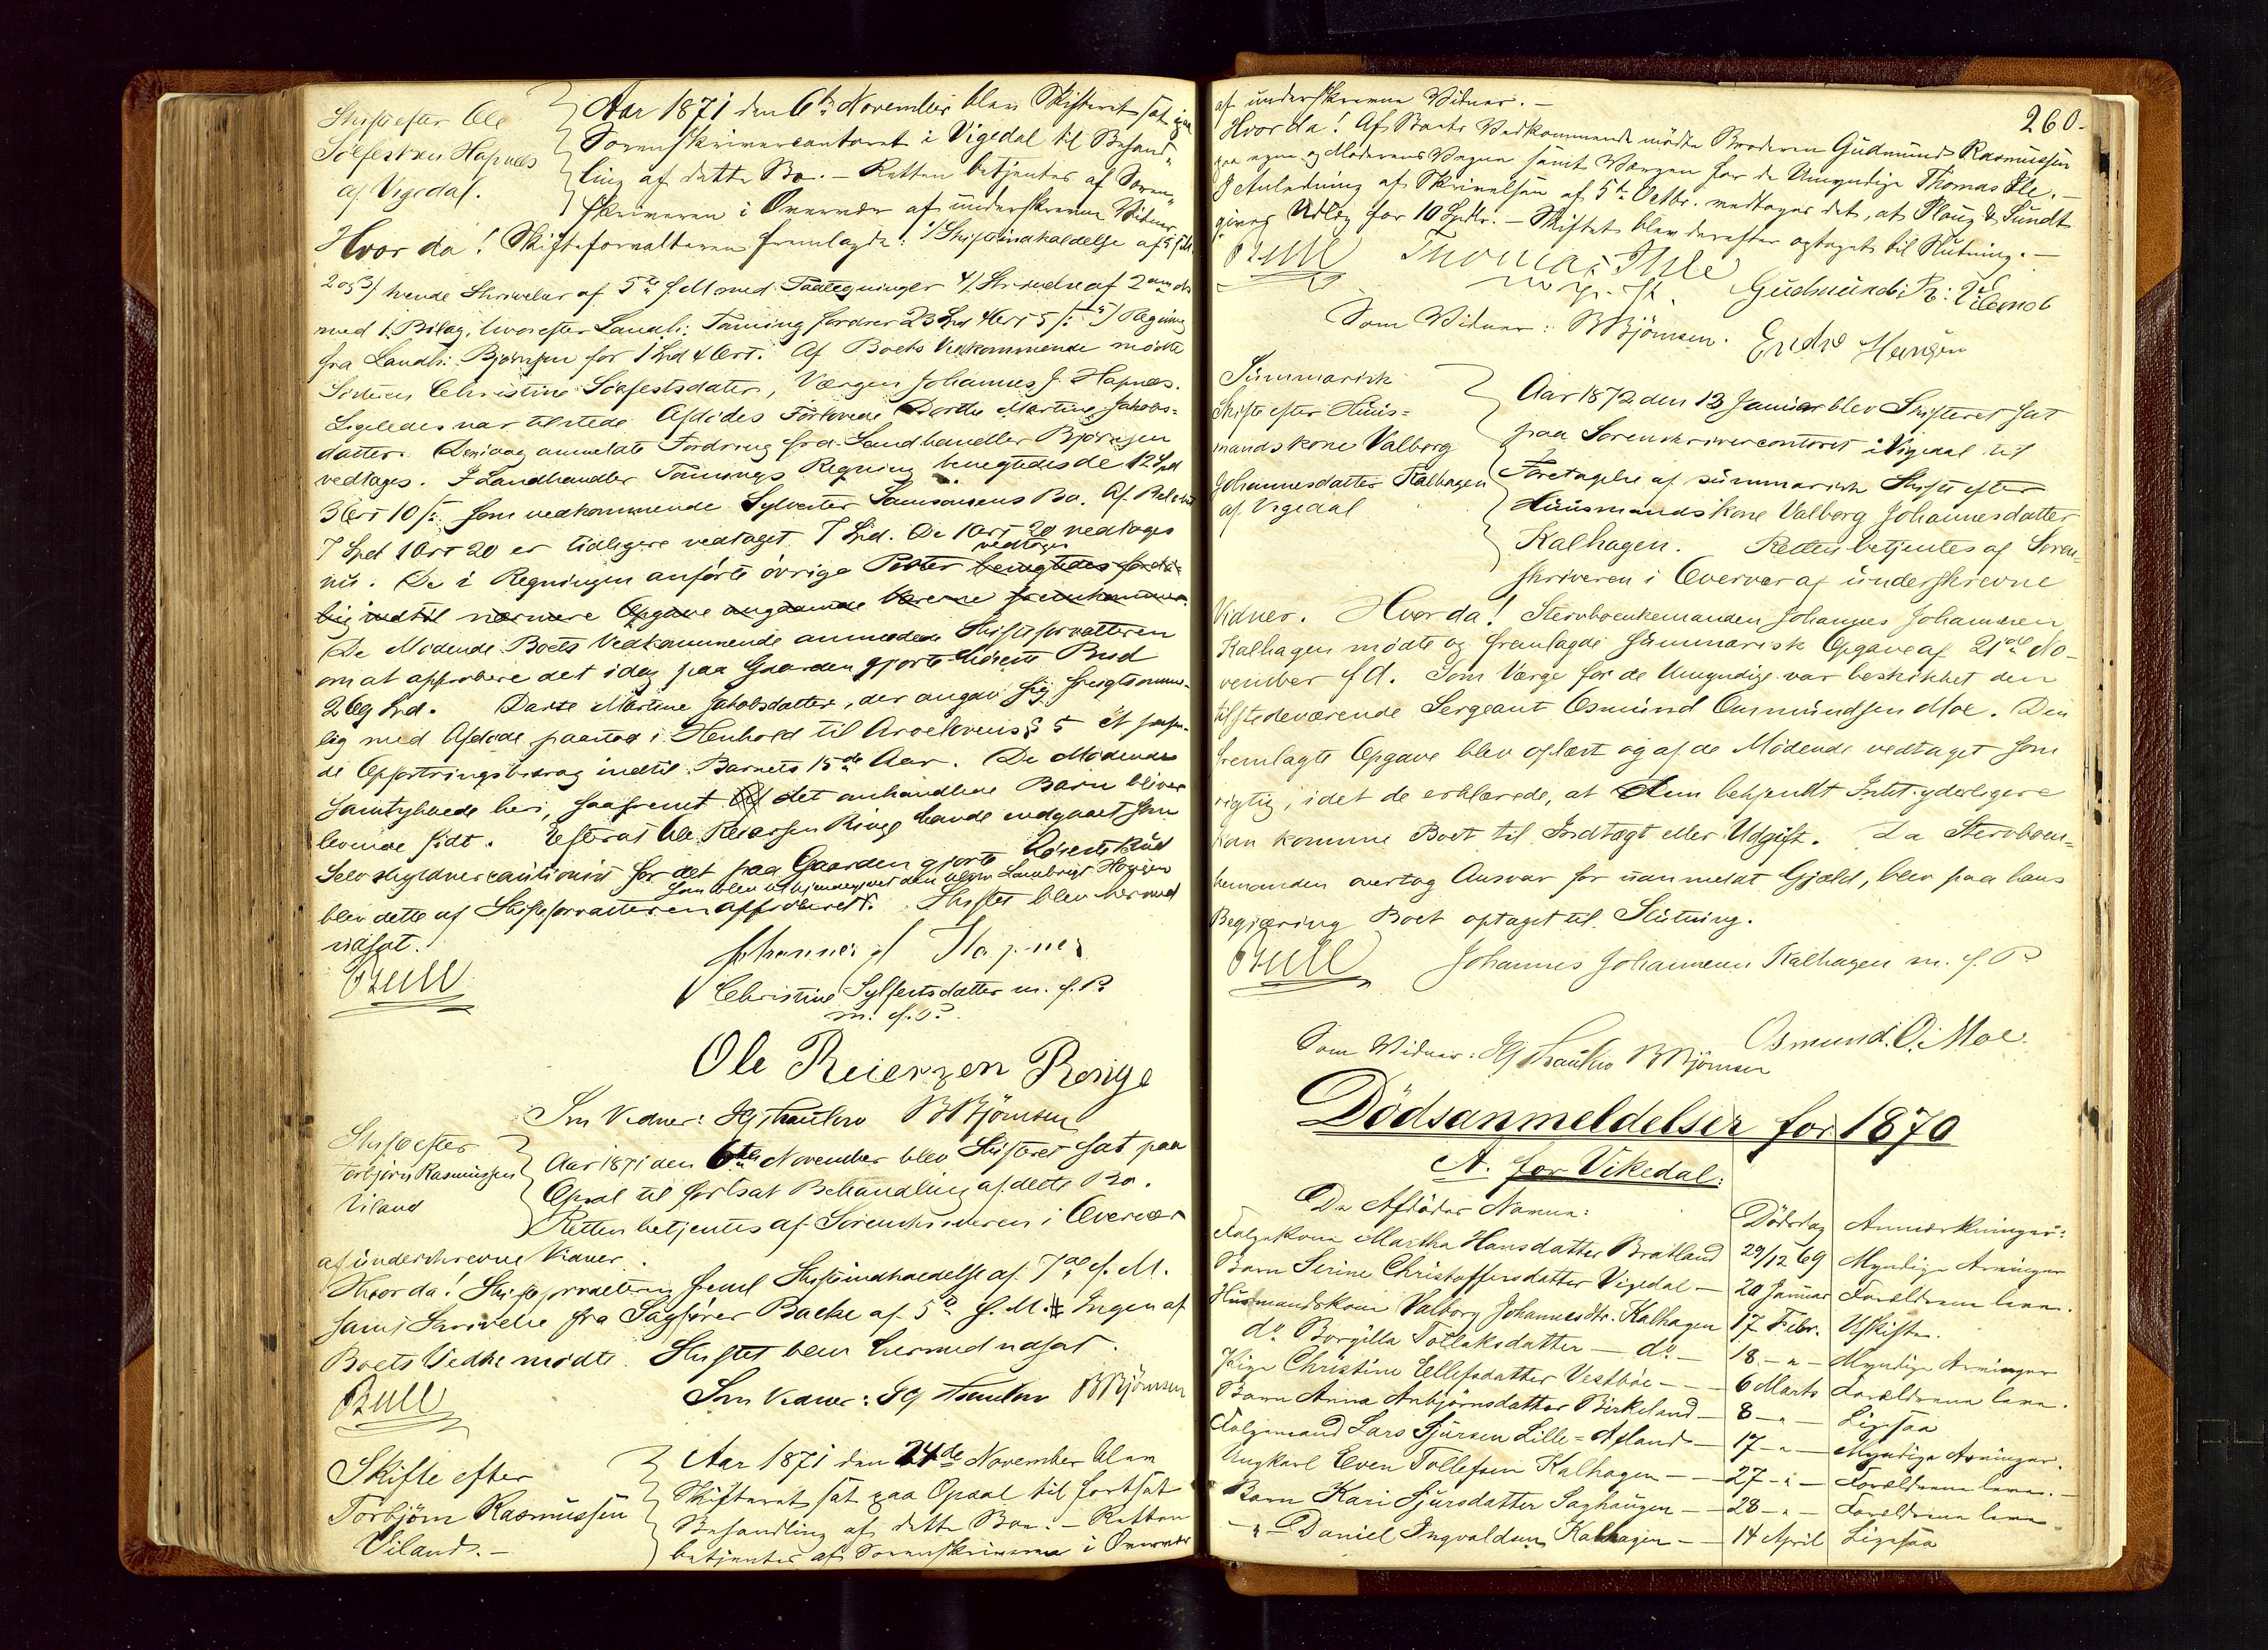 Skifte efter Ole
Solfestsen Hapnæs
af Vigedal.
Aar 1871 den 6te November blev Skifteret sat paa
Sorenskrivercontoret i Vigedal til Behand-
ling af dette Bo. – Retten betjentes af Soren-
skriveren i Overvær af underskrevne Vidner.
Hvor da! Skifteforvalteren fremlagde: 1/ Skifteindkaldelse af
2 og 3/ tvende Skrivelser af 5te f. M. med Paategninger 4/ Skrivelse af 2den ds
med 1 Bilag, hvorefter Landh: Tanning fordrer 23 Spd 4 Ort 5 /: 5/ Regning
fra Landh: Bjørnsen for 1 Spd 4 Ort. Af Boets Vedkommende mødte
Søsteren Christine Solfestsdatter, Værgen Johannes J. Hapnæs.
Ligeledes var tilstede Afdødes Forlovede Dorthe Martine Jakobs-
datter. Den idag anmeldte Fordring fra Landhandler Bjørnsen
vedtages. I Landhandler Tannings Regning benegtedes de 12 Spd
3 Ort 10 /: som vedkommende Sylvester Samsonsens Bo. Af Beløbet
7 Spd 1 Ort 20 er tidligere vedtaget 7 Spd. De 1 Ort 20 vedtages
nu. De i Regningen anførte øvrige Poster benegtedes forelø- vedtages
big indtil nærmere Opgave angaaende Varerne fremkommer.
De Mødende Boets Vedkommende anmodede Skifteforvalteren
om at approbere det idag paa Gaarden gjorte høieste Bud
269 Spd. Dorte Martine Jakobsdatter, der angav sig frugtsomme-
lig med Afdøde paastod i Henhold til Arvelovens § 5 et passen-
de Opfostringsbidrag indtil Barnets 15de Aar. De Mødende
samtykkede heri, saafremt det omhandlede Barn bliver
levende født. Efterat Ole Reiersen Ringe havde indgaaet som
Selvskyldnercautionist for det paa Gaarden gjorte høieste Bud
som blev
blev dette af Skifteforvalteren approberet. Skiftet blev hermed
udsat.
Bull
Johannes J Hapnes
Christine Sylfestsdatter m. f. P.
m. f. P.
Ole Reiersen Ringe
Som Vidner: BBjørnsen
Skifte efter
Torbjørn Rasmussen
Viland
Aar 1871 den 6te November blev Skifteret sat paa
Opsal til fortsat Behandling af dette Bo.
Retten betjentes af Sorenskriveren i Overvær
af underskrevne Vidner.
Hvor da! Skifteforvalteren freml Skifteindkaldelse af 7de f. M.
samt Skrivelse fra Sagfører Backe af 5te f. M. Ingen af
Boets Vedk. mødte. Skiftet blev hermed udsat.
Bull
Som Vidner: BBjørnsen
Skifte efter
Torbjørn Rasmussen
Viland. –
Aar 1871 den 24de November blev
Skifteret sat paa Opsal til fortsat
Behandling af dette Bo. – Retten
betjentes af Sorenskriveren i Overvær
260.
af underskrevne Vidner. –
Hvor da! Af Boets Vedkommende mødte Broderen Gudmund Rasmussen
paa egne og Moderens Vegne samt Værgen for de Umyndige Thomas Ile. –
I Anledning af Skrivelsen af 5te Octbr. vedtages det, at Ploug & Sundt
gives Udlæg for 10 Spdlr. – Skiftet blev derefter optaget til Slutning. –
Bull
Thomas Ihle
Gudmund R: Viland
Som Vidner: BBjørnsen. Endre Haugen
Summarisk
Skifte efter Huus-
mandskone Valborg
Johannesdatter Kalhagen
af Vigedal
Aar 1872 den 13 Januar blev Skifteret sat
paa Sorenskrivercontoret i Vigedal til
Foretagelse af summarisk Skifte efter
Huusmandskone Valborg Johannesdatter
Kalhagen. Retten betjentes af Soren-
skriveren i Overvær af underskrevne
Vidner. Hvor da! Stervboenkemanden Johannes Johannesen
Kalhagen mødte og fremlagde summarisk Opgave af 21de No-
vember f. A. Som Værge for de Umyndige var beskikket den
tilstedeværende Sergeant Osmund Osmundsen Moe. Den
fremlagte Opgave blev oplæst og af de Mødende vedtaget som
rigtig, idet de erklærede, at dem bekjendt Intet yderligere
kan komme Boet til Indtægt eller Udgift. Da Stervboen-
kemanden overtog Ansvar for uanmeldt Gjæld, blev paa hans
Begjæring Boet optaget til Slutning.
Bull
Johannes Johannesen Kalhagen m. f. P.
Osmund. O. Moe.
Som Vidner: BBjørnsen
Dödsanmeldelser for 1870
A. for Vikedal:
De Afdødes Navne: Dødsdag Anmærkninger:
Folgekone Martha Hansdatter Bratland 29/12 69 Myndige Arvinger
Barn Serine Christoffersdatter Vigedal – 20 Januar Forældrene leve.
Husmandskone Valborg Johannesdtr. Kalhagen 17 Febr. Uskifte.
do Borgilla Tollaksdatter – do – 18 – " – Myndige Arvinger
Pige Christine Ellefsdatter Vestbøe – – 6 Marts Forældrene leve.
Barn Anna Anbjørnsdatter Birkeland – 8 – " – Ligesaa
Folgemand Lars Sjursen Lille-Øfland – 17 – " – Myndige Arvinger.
Ungkarl Even Tollefsen Kalhagen – – 27 – " – Forældrene leve. –
Barn Kari Sjursdatter Saghaugen – 28 – " – Forældrene leve
– " – Daniel Ingvaldsen Kalhagen – – 14 April Ligesaa